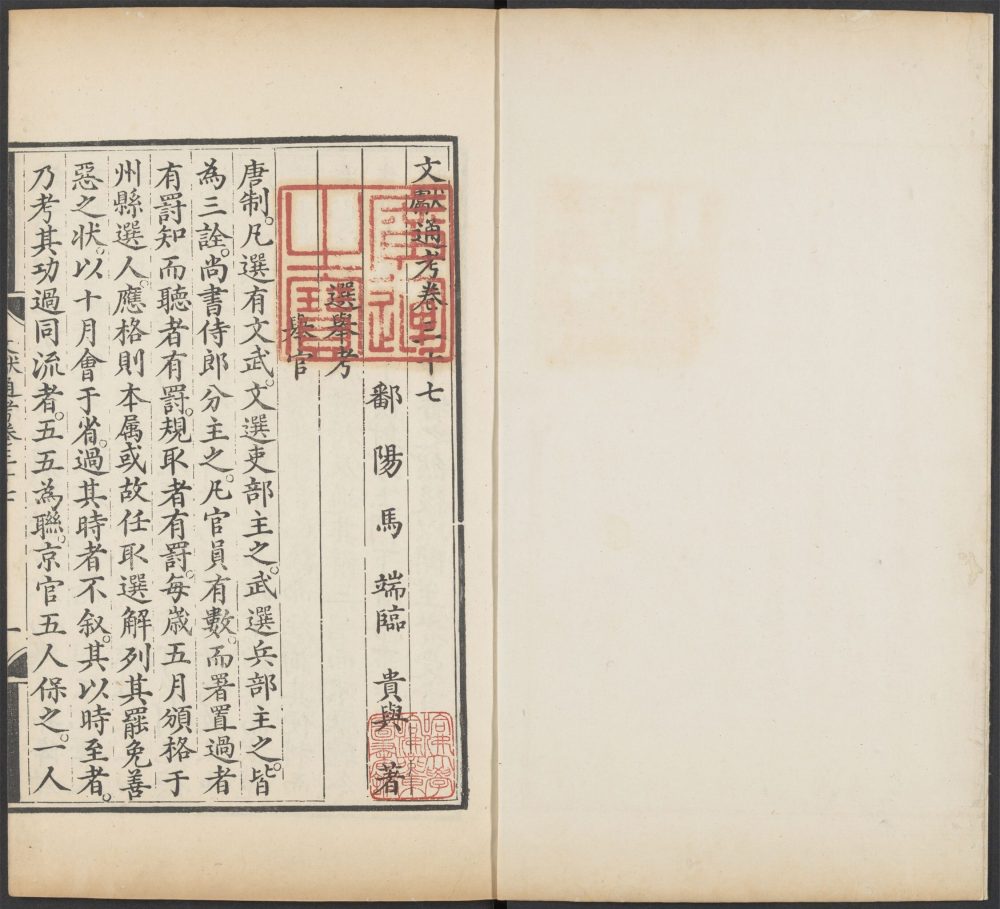 文獻通考卷三十七
鄱陽馬端臨貴與著
選舉考
舉官
唐制。凡選有文武。文選吏部主之。武選兵部主之。皆
為三詮。尚書侍郎分主之。凡官員有數。而署置過者
有罰知而聽者有罰。規取者有罰。每嵗五月頒格于
州縣選人。應格則本属或故任取選解列其罷免善
惡之状。以十月會于省。過其時者不叙。其以時至者。
乃考其功過同流者。五五為聯。京官五人保之。一人
文獻通考卷三十七
一